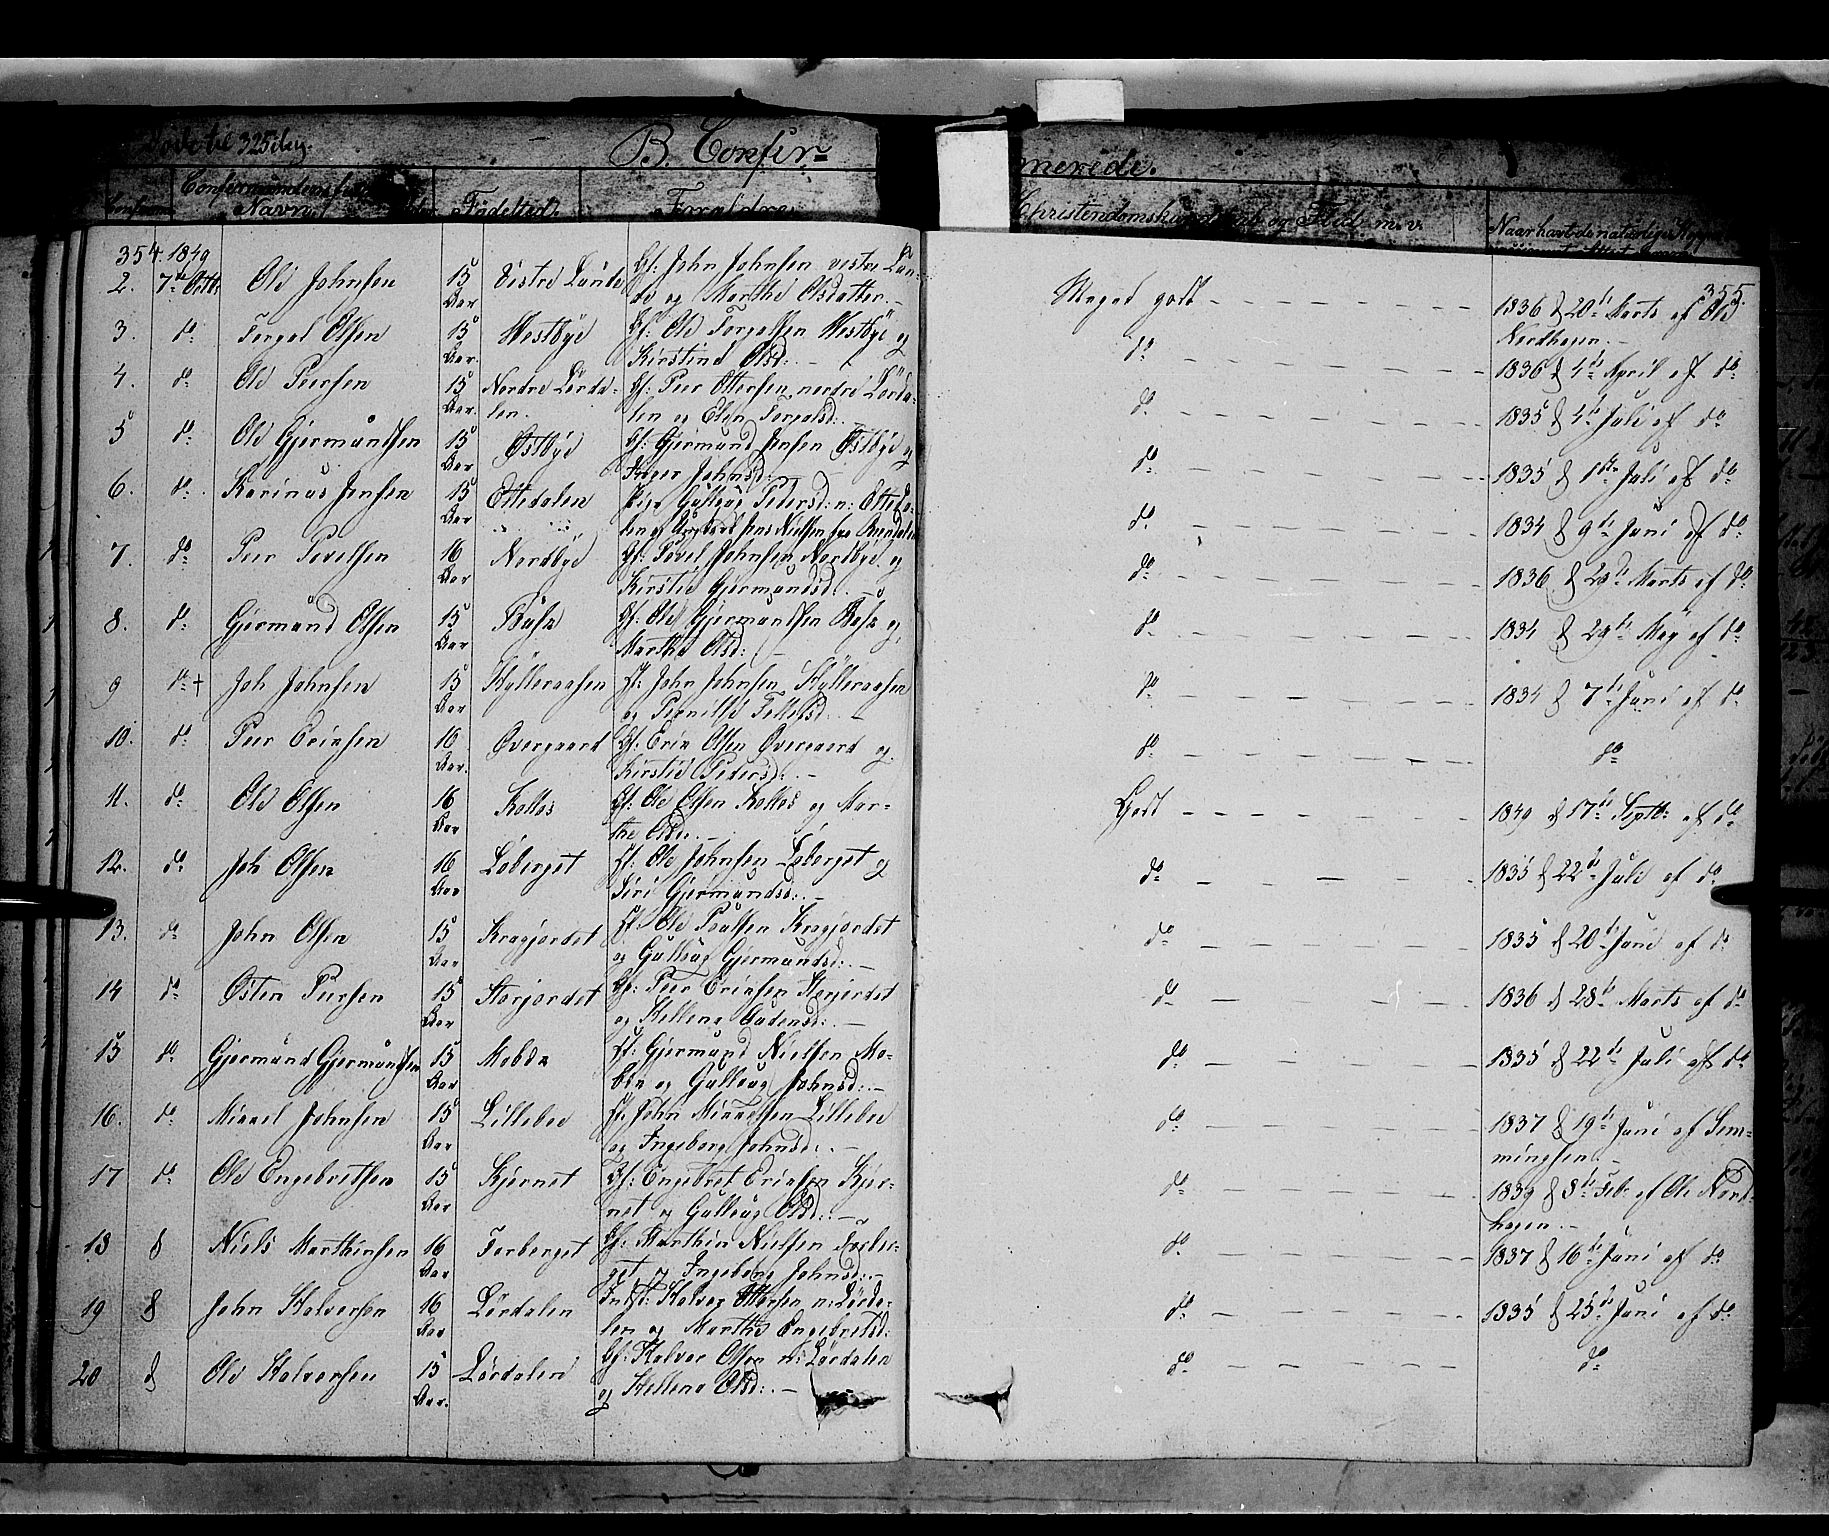 B. Confir=
merede.
Navn.
Fødested.
Forældre.
Christendomskundskab og Flid m. v.
354. 1849
355.
2. 7de Octbr Ole Johnsen 15 Aar Vestre Lunde Gf: John Johnsen vestre Lun-
de og Marthe Olsdatter. – Meget godt 1836 d 20de Marts af Ole
Nordhagen. –
3. do Torgal Olsen 15 Aar. Westbye Gf: Ole Torgalsen Westbye og
Kirstine Olsd: – do 1836 d 4de April af do
4. do Ole Peersen 15 Aar. Nordre Lørda-
len. Gf: Peer Ottersen nordre Lørda-
len og Elen Torgalsd: do 1835 d 4de Juli af do
5 do Ole Gjermundsen 15 Aar Østbye Gf: Gjermund Jensen Østbye og
Inger Johnsd: do 1835 d 1ste Juli af do
6. do. Karinus Jensen 15 Aar Ettedalen Pige Gulloug Pedersd: n: Etteda-
len og Jens Nielsen fra do 1834 d 9de Juni af do
7. do Peer Povelsen 16 Aar Nordbye Gf: Povel Johnsen Nordbye og
Kirstie Gjermundsd. do 1836 d 20de Marts af do
8. do Gjermund Olsen 15 Aar Gf: Ole Gjermundsen og
Marthe Olsd: – do 1834 d 29de May af do
9 do + Joh Johnsen 15 Aar Hylleraasen If: John Johnsen Hylleraasen
og Pernille Tollefsd: – do 1834 d 7de Juni af do
10. do Peer Ericksen 16 Aar. Øvergaard Gf: Eric Olsen Øvergaard og
Kirstie Pedersd: – do do
11. do Ole Olsen 16 Aar Kolles Gf: Ole Olsen Kolles og Mar-
the Olsd. – Godt 1849 d 17de Septb: af do
12. do Joh Olsen 16 Aar Løberget If: Ole Johnsen Løberget og
Siri Gjermundsd: – do 1835 d 22de Juli af do
13. do John Olsen 15 Aar Kragjordet If. Ole Poulsen Kragjordet
og Gulloug Gjermundsd: – do 1835 d 20de Juni af do
14 do Østen Peersen 15 Aar Storjordet Gf: Peer Ericksen Storjordet
og Hellene do 1836 d 28de Marts af do
15 do Gjermund Gjermundsen 15 Aar Moben If: Gjermund Nielsen Mo-
ben og Gulloug Johnsd: – do 1835 d 22de Juli af do
16. do Mikkel Johnsen 15 Aar Lilleboe If. John Mikkelsen Lilleboe
og Ingeborg Johnsd: – do 1837 d 19de Juni af Sim-
mingsen. –
17 do Ole Engebretsen 15 Aar Kjernet Gf: Engebret Ericksen Kjer-
net og Gulloug Olsd: – do 1839 d 8de Feb: af Ole Nord-
hagen. –
18 d Niels Marthinsen 16 Aar Forberget Gf: Marthin Nielsen Forber-
get og Ingeborg Johnsd: – do 1837 d 16de Juni af do
19 d John Halvorsen 16 Aar Lørdalen Indst: Halvor Ottersen n: Lørda-
len og Marthe Engebretsd: do 1835 d 25de Juni af do
20 d Ole Halvorsen 15 Aar. Lørdalen Gf: Halvor Olsen n: Lørdalen
og Hellene Olsd: – do do